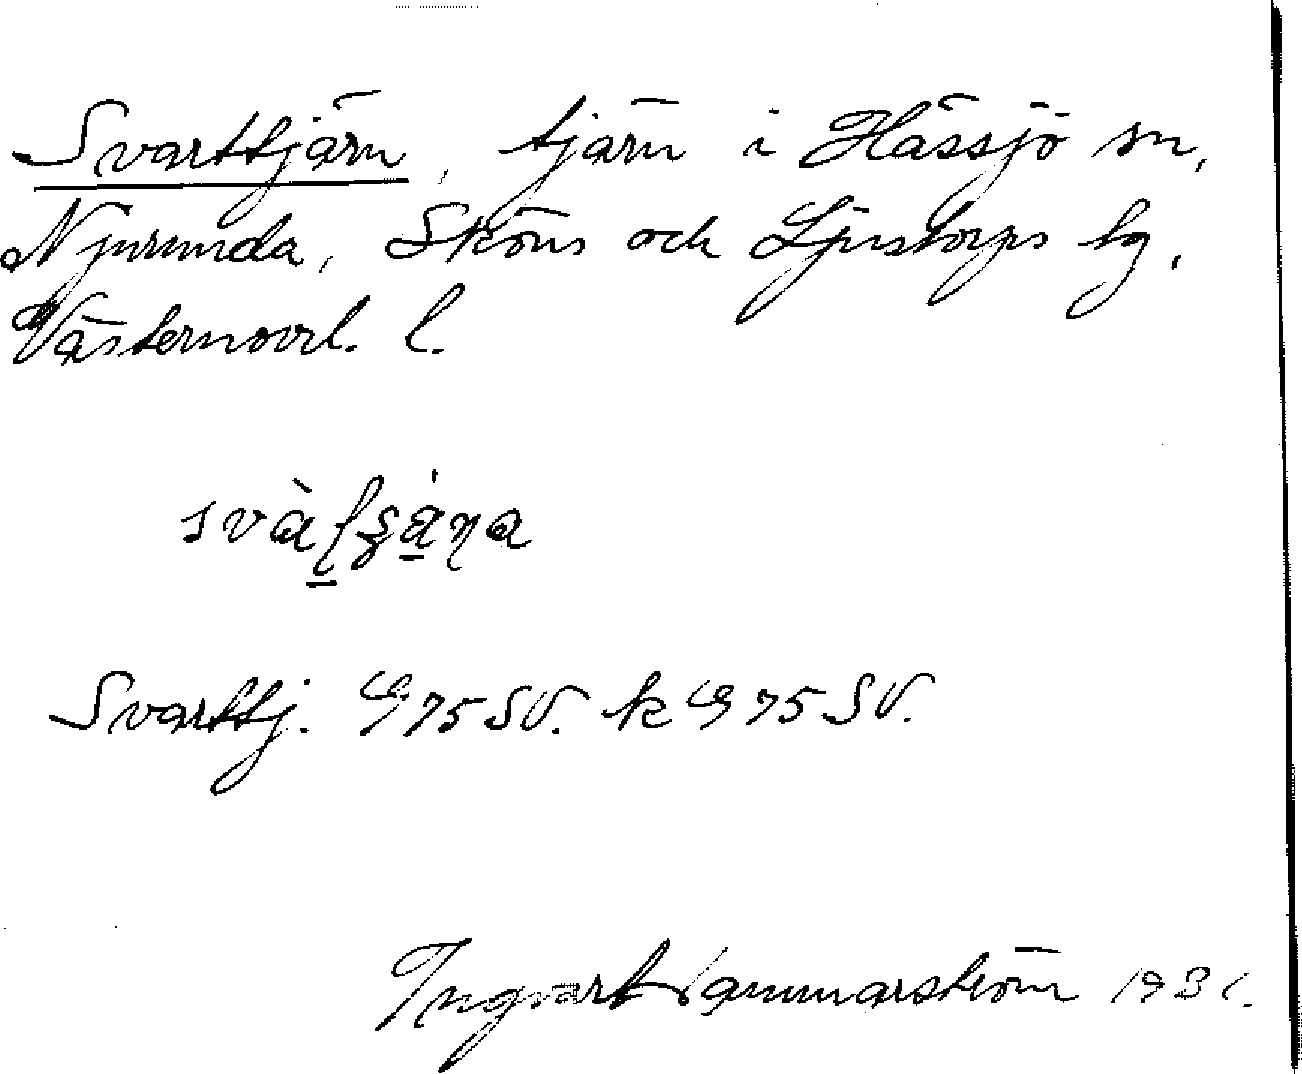 Svarttjärn, tjärn i Hässjö sn,
Njurunda, Sköns och Ljustorps tg,
Västernorrl. l.
Svarttj. G 75 SV. k G 75 SV.
Ingvar Hammarström 1931.